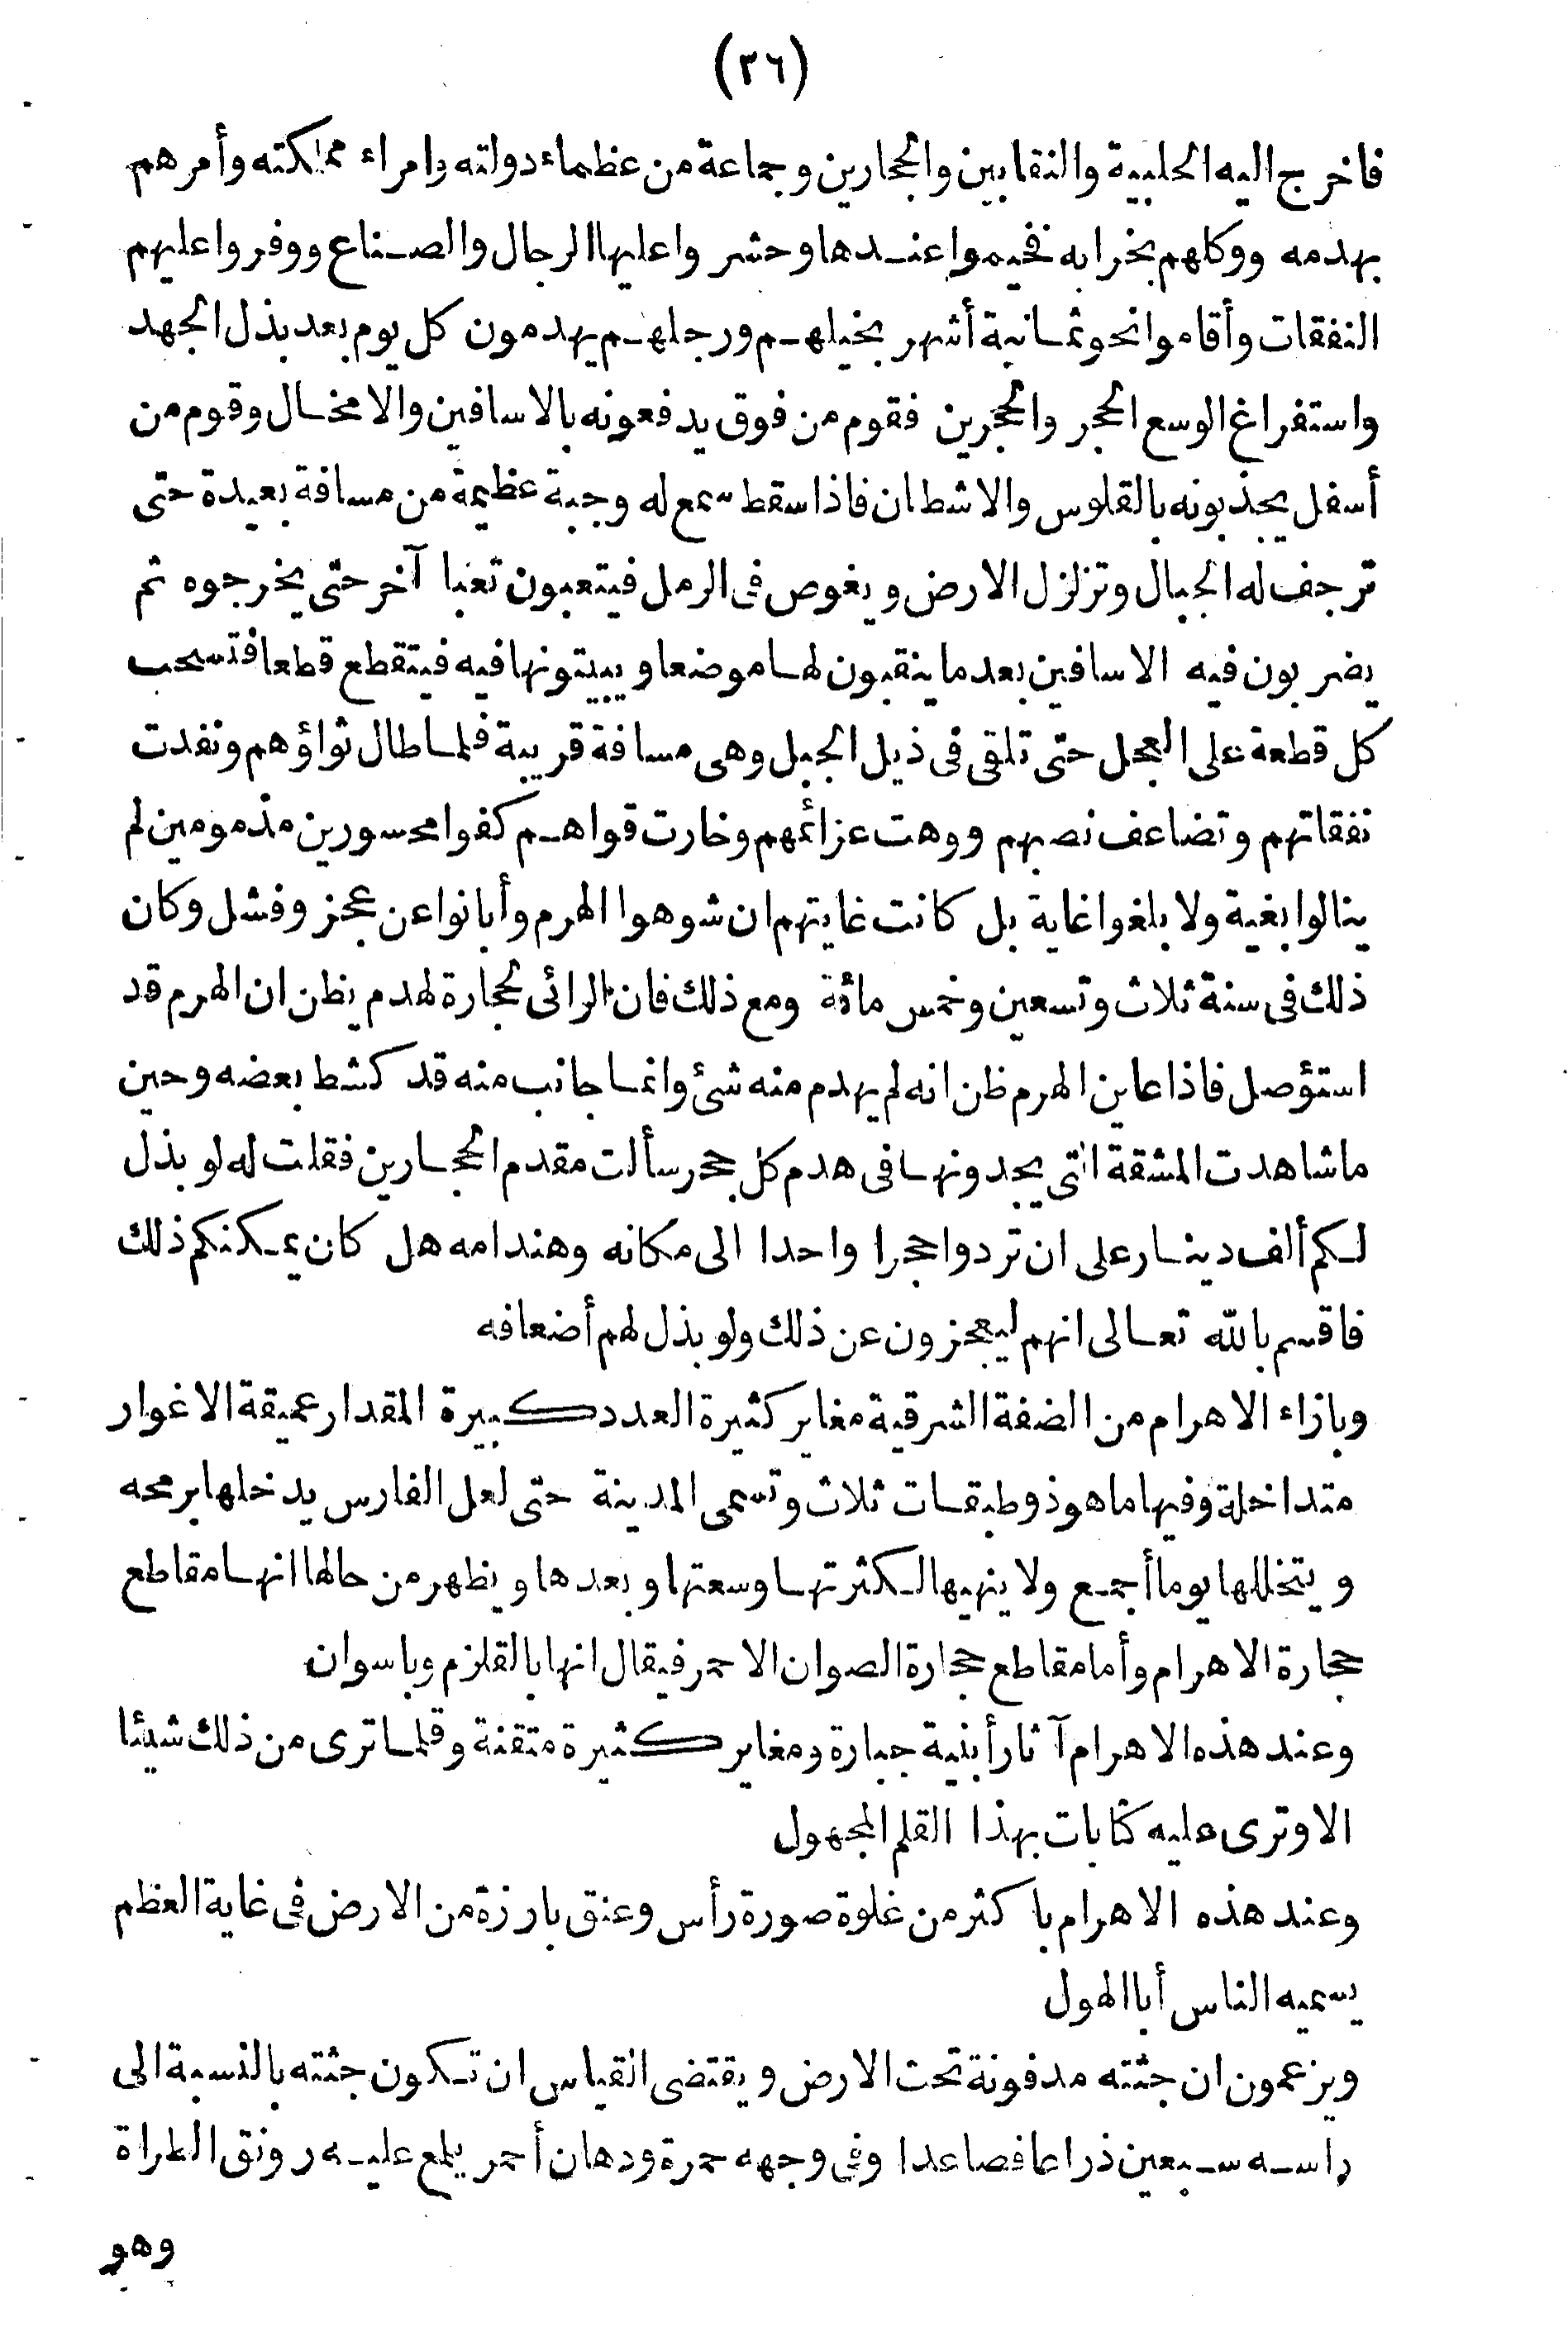 (٣٦)
فاخرج اليه الحلبية والنقابين والحجارين وجماعة من عظماء دولته وامراء مملكته وأمرهم
بهدمه ووكلهم بخرابه فخيموا عندها وحشروا عليها الرجال والصناع ووفروا عليهم
النفقات وأقاموا نحو ثمانية أشهر بخيلهم ورجلهم يهدمون كل يوم بعد بذل الجهد
واستفراغ الوسع الحجر والحجرين فقوم من فوق يدفعونه بالاسافين والامخال وقوم من
أسفل يجذبونه بالقلوس والاشطان فاذا سقط سمع له وجبة عظيمة من مسافة بعيدة حتى
ترجف له الجبال وتزلزل الارض ويغوص فى الرمل فيتعبون تعبا آخر حتى يخرجوه ثم
يضربون فيه الاسافين بعد ما ينقبون لها موضعا ويبيتونها فيه فيتقطع قطعا فتسحب
كل قطعة على العجل حتى تلقى فى ذيل الجبل وهى مسافة قريبة فلما طال ثواؤهم ونفدت
نفقاتهم وتضاعف نصبهم ووهت عزائمهم وخارت قواهم كفوا محسورين مذمومين لم
ينالوا بغية ولا بلغوا غاية بل كانت غايتهم ان شوهوا الهرم وأبانوا عن عجز وفشل وكان
ذلك فى سنة ثلاث وتسعين وخمس مائة ومع ذلك فان الرائى لحجارة لهدم يظن ان الهرم قد
استؤصل فاذا عاين الهرم ظن انه لم يهدم منه شئ وانما جانب منه قد كشط بعضه وحين
ما شاهدت المشقة التى يجدونها فى هدم كل حجر سألت مقدم الحجارين فقلت له لو بذل
لكم ألف دينار على ان تردوا حجرا واحدا الى مكانه وهندامه هل كان يمكنكم ذلك
فاقسم بالله تعالى انهم ليعجزون عن ذلك ولو بذل لهم أضعافه
وبازاء الاهرام من الضفة الشرقية مغاير كثيرة العدد كبيرة المقدار عميقة الاغوار
متداخلة وفيها ما هو ذو طبقات ثلاث وتسمى المدينة حتى لعل الفارس يدخلها برمحه
ويتخللها يوما أجمع ولا ينهيها لكثرتها وسعتها وبعدها ويظهر من حالها انها مقاطع
حجارة الاهرام وأما مقاطع حجارة الصوان الاحمر فيقال انها بالقلزم وباسوان
وعند هذه الاهرام آثار أبنية جبارة ومغاير كثيرة متقنة وقلما ترى من ذلك شيئا
الا وترى عليه كتابات بهذا القلم المجهول
وعند هذه الاهرام باكثر من غلوة صورة رأس وعنق بارزة من الارض فى غاية العظم
يسميه الناس أبا الهول
ويزعمون ان جثته مدفونة تحت الارض ويقتضى القياس ان تكون جثته بالنسبة الى
راسه سبعين ذراعا فصاعدا وفى وجهه حمرة ودهان أحمر يلمع عليه رونق الطراة
وهو